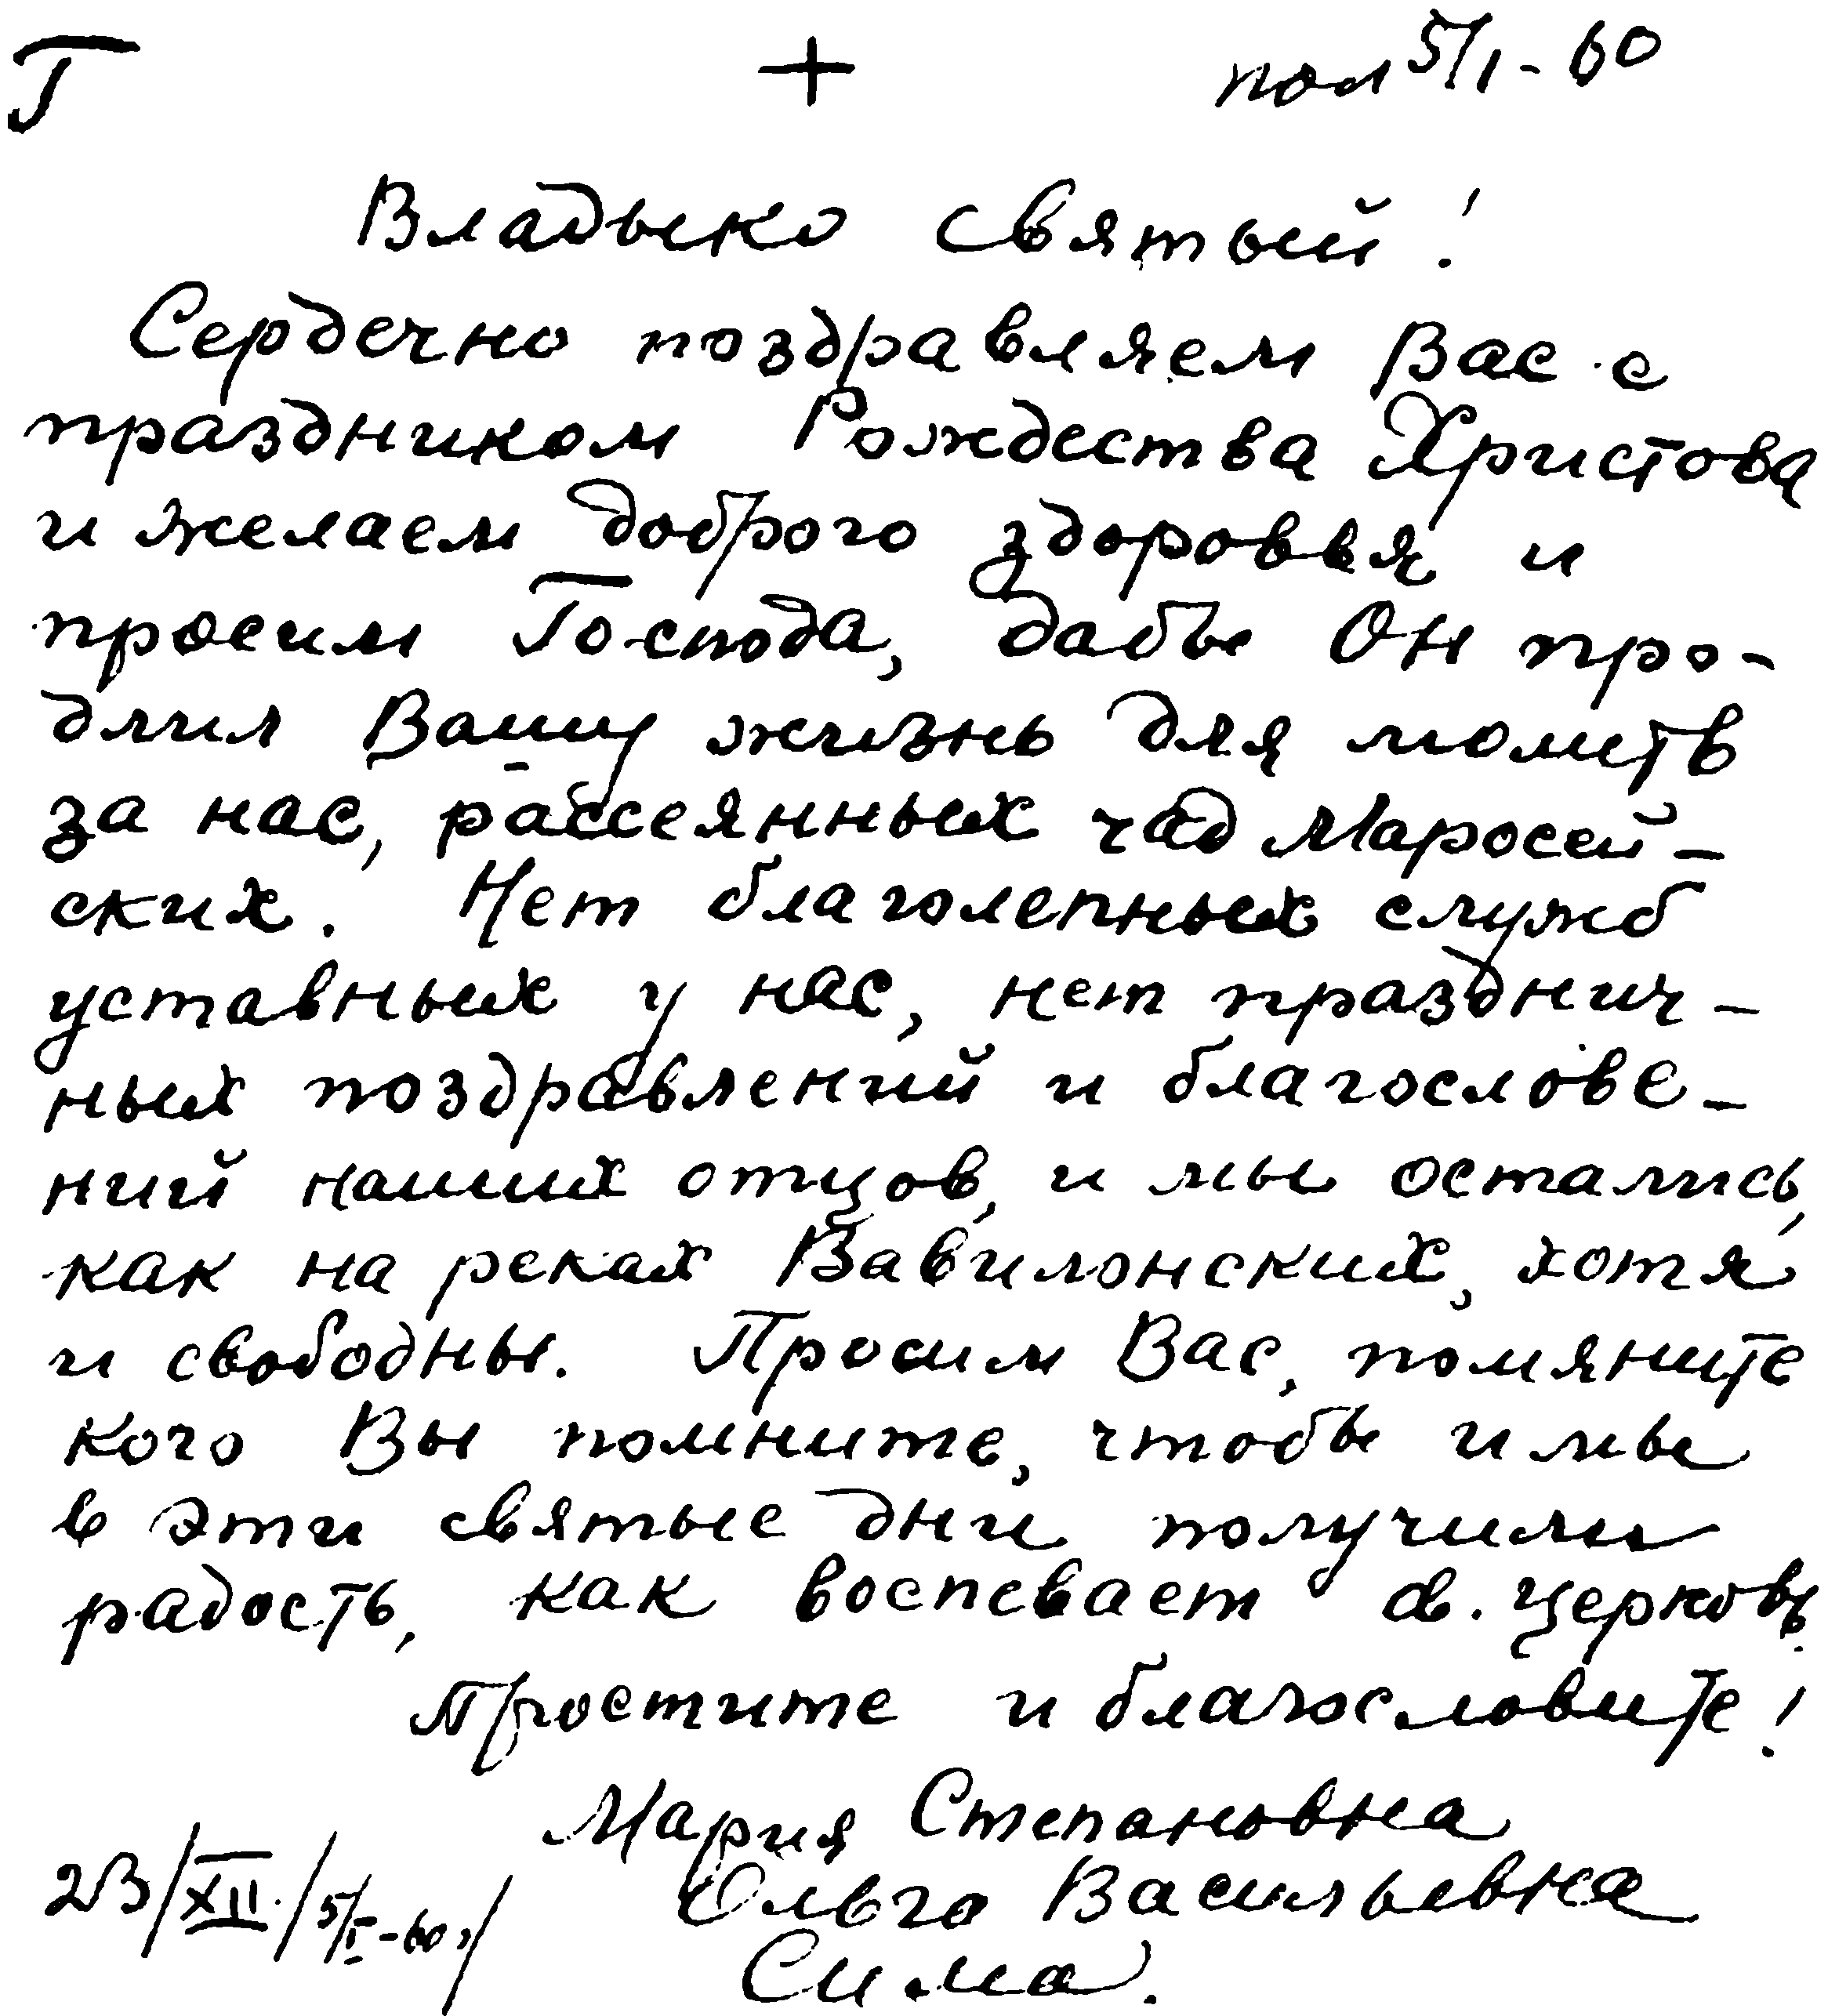 Г + пол 5/I-60
Владыко святый!
Сердечно поздравляем Вас с
праздником Рождества Христова
и желаем доброго здоровья и
просим Господа, дабы Он про-
длил Вашу жизнь для молитв
за нас, рассеянных чад Маросей-
ских. Нет благолепных служб
уставных у нас, нет празднич-
ных поздравлений и благослове-
ний наших отцов, и мы остались,
как на реках Вавилонских, хотя
и свободны. Просим Вас, помяните
кого Вы помните, чтобы и мы
в эти святые дни получили
радость, как воспевает св. Церковь.
Простите и благословите!
Мария Степановна
23/XII./5/I-60/ Ольга Васильевна
Сима.